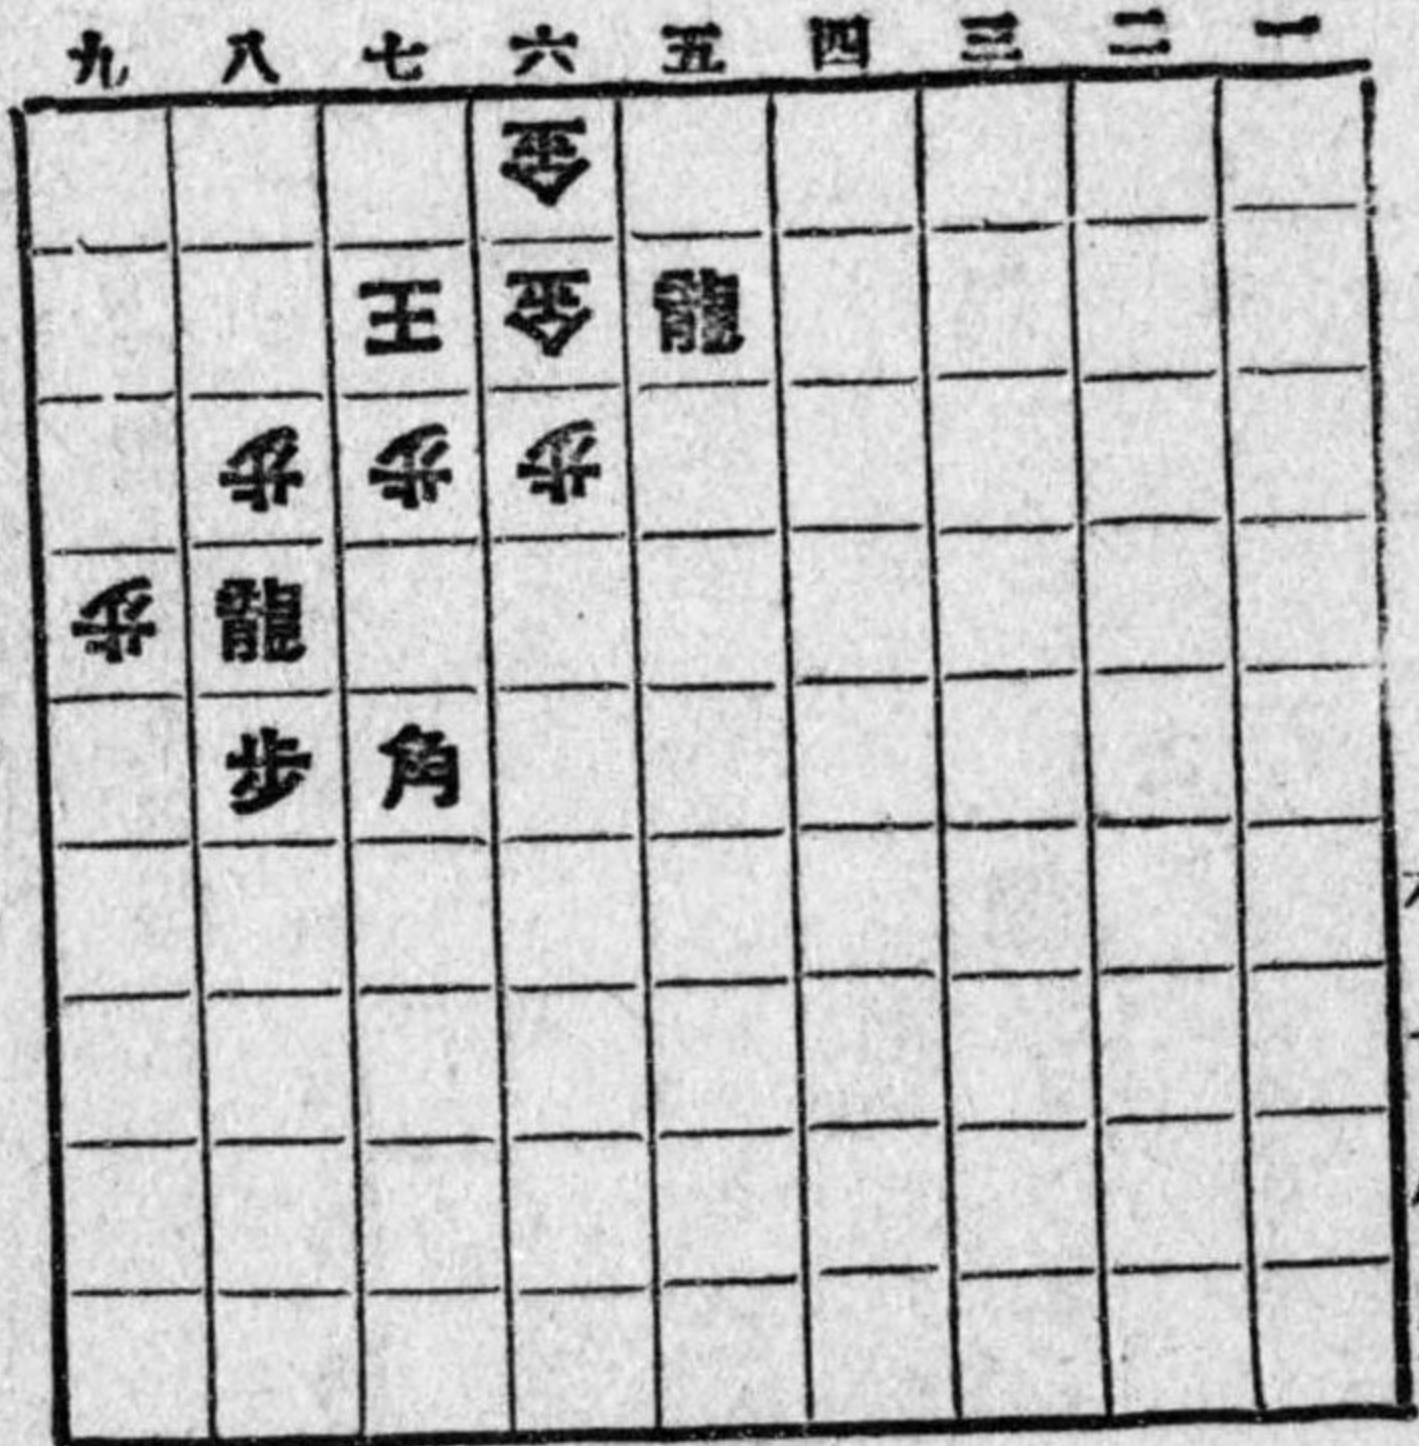 九 八 七 六 五 四 三 二 一
金
王 金 龍
歩 歩 歩
歩 龍
歩 角